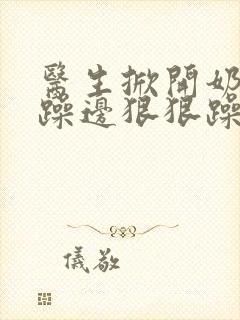 醫生掀開奶
躁邊狠狠躁
儀敬